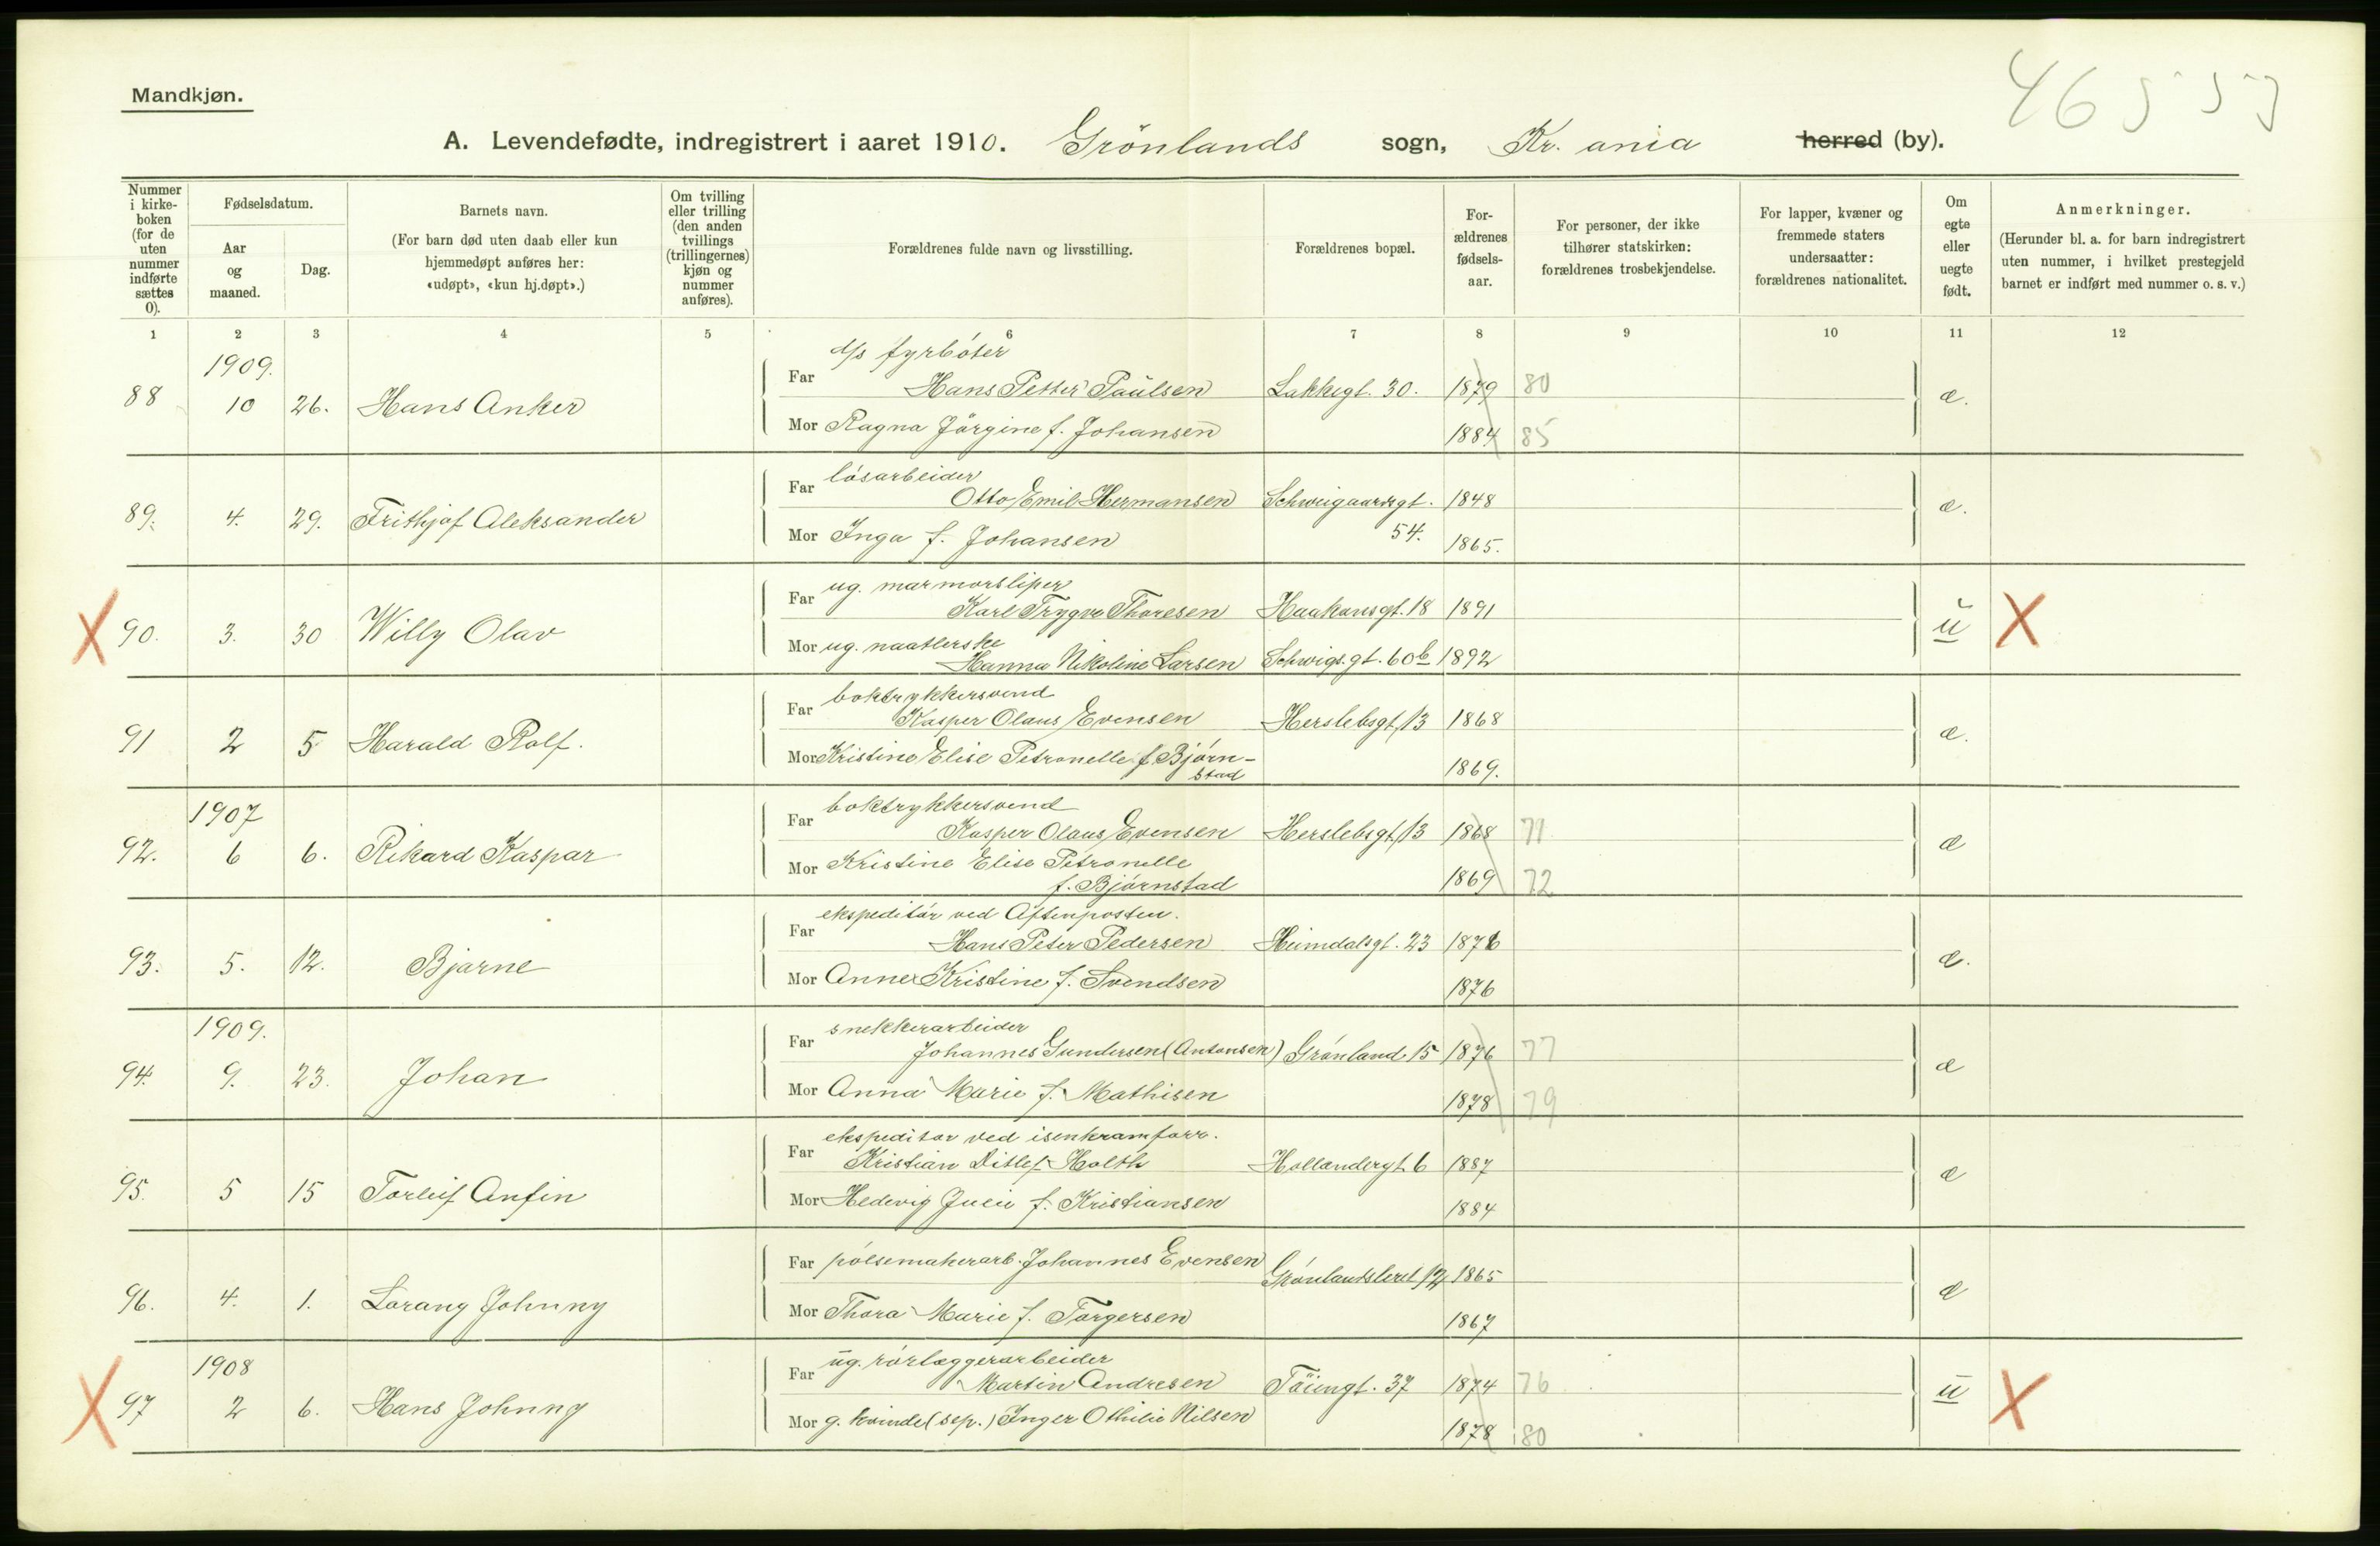 Mandkjøn.
A. Levendefødte, indregistrert i aaret 1910. Grönlands sogn, Kr. ania herred (by).
Nummer i kirkeboken (for de uten nummer indførte sættes 0).
Fødselsdatum.
Aar og maaned.
Dag.
Barnets navn.
(For barn død uten daab eller kun hjemmedøpt anføres her: «udøpt», «kun hj.døpt».)
Om tvilling eller trilling (den anden tvillings (trillingernes) kjøn og nummer anføres).
Forældrenes fulde navn og livsstilling.
Forældrenes bopæl.
Forældrenes fødselsaar.
For personer, der ikke tilhører statskirken: forældrenes trosbekjendelse.
For lapper, kvæner og fremmede staters undersaatter: forældrenes nationalitet.
Om egte eller uegte født.
Anmerkninger.
(Herunder bl. a. for barn indregistrert uten nummer, i hvilket prestegjeld barnet er indført med nummer o. s. v.)
1 2 3 4 5 6 7 8 9 10 11 12
1909.
d/s fyrbóter
88 10 26. Hans Anker Far Hans Petter Paulsen Lakkegt. 30. 1879 80 æ.
Mor Ragna Jörgine f. Johansen 1884 85
løsarbeider
89. 4. 29. Frithjof Aleksander Far Otto Emil Hermansen Schweigaardsgt. 54. 1848 æ.
Mor Inga f. Johansen 1865.
ug. marmorsliper
X 90. 3. 30 Willy Olav Far Karl Trygve Thoresen Haakonsgt. 18 1891 u X
Mor ug. naatlerske
Hanna Nikoline Larsen Schwigs.gt. 60b 1892
boktrykkersvend
91 2 5 Harald Rolf. Far Kasper Olaus Evensen Herslebsgt. 13 1868 æ.
Mor Kristine Elise Petronelle f. Bjørnstad 1869.
1907
boktrykkersvend
92. 6 6. Rikard Kaspar Far Kasper Olaus Evensen Herslebsgt. 13 1868 71 æ
Mor Kristine Elise Petronelle
f. Bjørnstad 1869 72
ekspeditør ved Aftenposten.
93. 5. 12. Bjarne Far Hans Peter Pedersen Heimdalsgt. 23 1876 æ.
Mor Anne Kristine f. Svendsen 1876
1909.
snekkerarbeider
94. 9. 23. Johan Far Johannes Gundersen (Antonsen) Grønland 15 1876 77 æ
Mor Anna Marie f. Mathisen 1878 79
ekspeditør ved isenkramforr.
95. 5 15 Torleif Anfin Far Kristian Ditlef Holth Hollændergt. 6 1887 æ
Mor Hedevig Julie f. Kristiansen 1884
96. 4. 1. Lorang Johnny Far pølsemakerarb. Johannes Evensen Grønlandsleret 12 1865 æ
Mor Thora Marie f. Torgersen 1867
1908
ug. rørlæggerarbeider
X 97 2 6. Hans Johnny Far Martin Andresen Töiengt. 37 1874 76 u X
Mor g. kvinde (sep.) Inger Othilie Nilsen 1878 80